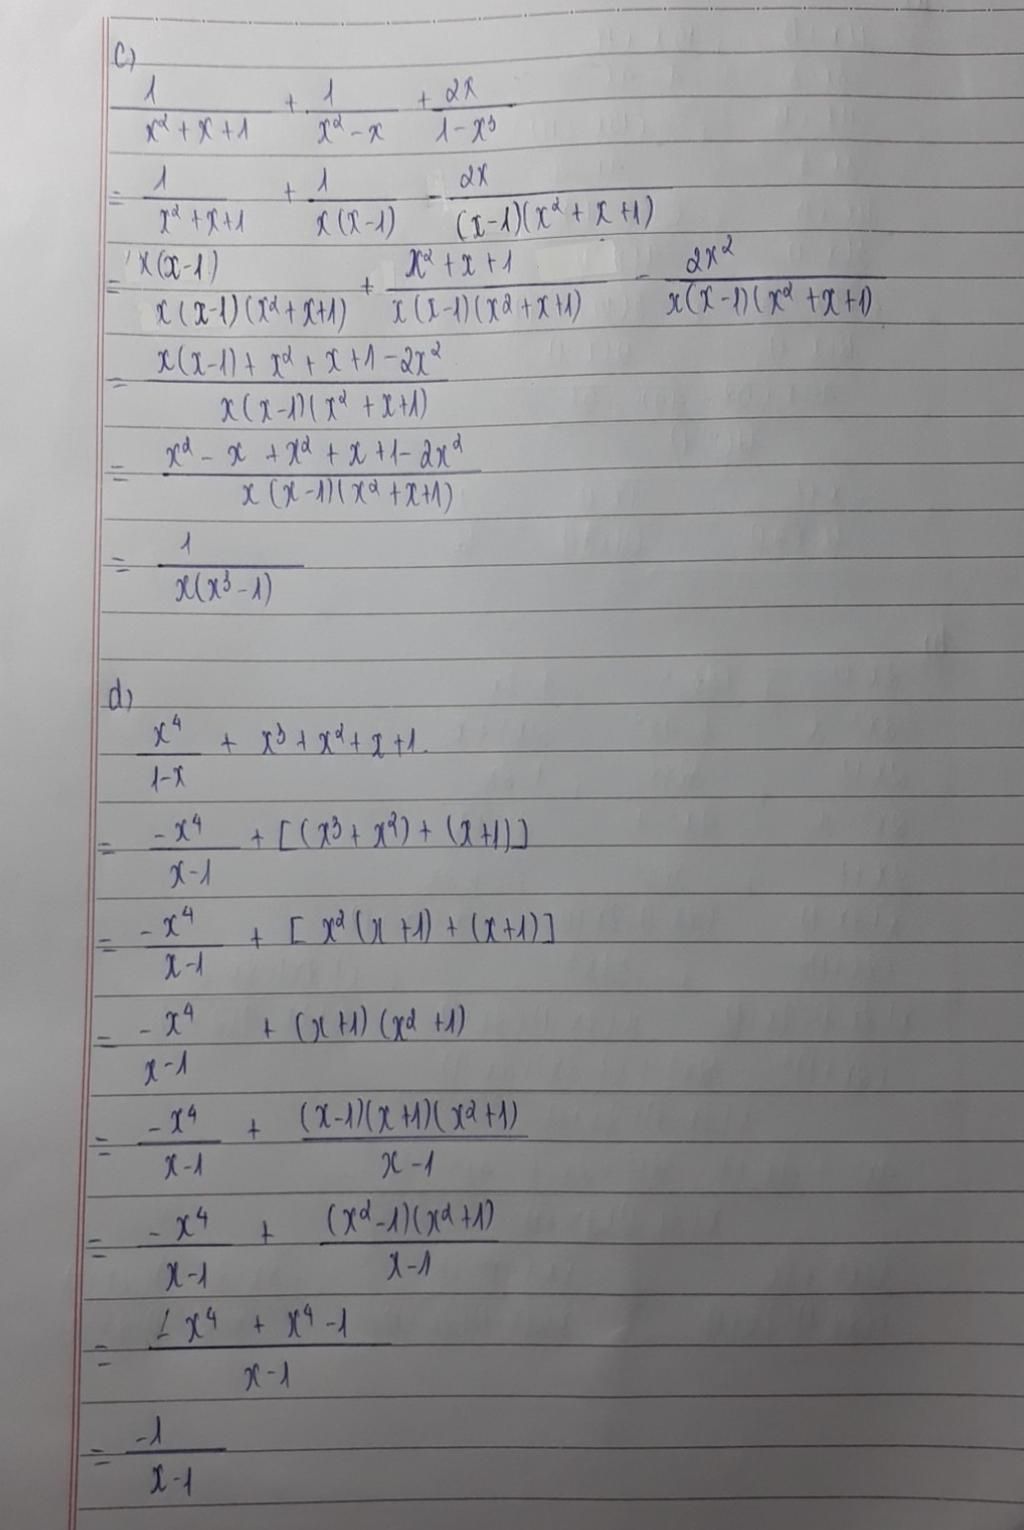 c)
1/(x² + x + 1) + 1/(x² - x) + 2x/(1 - x³)
= 1/(x² + x + 1) + 1/(x(x-1)) - 2x/((x-1)(x² + x + 1))
= x(x-1)/(x(x-1)(x² + x + 1)) + (x² + x + 1)/(x(x-1)(x² + x + 1)) - 2x²/(x(x-1)(x² + x + 1))
= (x(x-1) + x² + x + 1 - 2x²)/(x(x-1)(x² + x + 1))
= (x² - x + x² + x + 1 - 2x²)/(x(x-1)(x² + x + 1))
= 1/(x(x³ - 1))
d)
x⁴/(1-x) + x³ + x² + x + 1
= -x⁴/(x-1) + [(x³ + x²) + (x+1)]
= -x⁴/(x-1) + [x²(x+1) + (x+1)]
= -x⁴/(x-1) + (x+1)(x² + 1)
= -x⁴/(x-1) + (x-1)(x+1)(x²+1)/(x-1)
= -x⁴/(x-1) + (x²-1)(x²+1)/(x-1)
= (-x⁴ + x⁴ - 1)/(x-1)
= -1/(x-1)